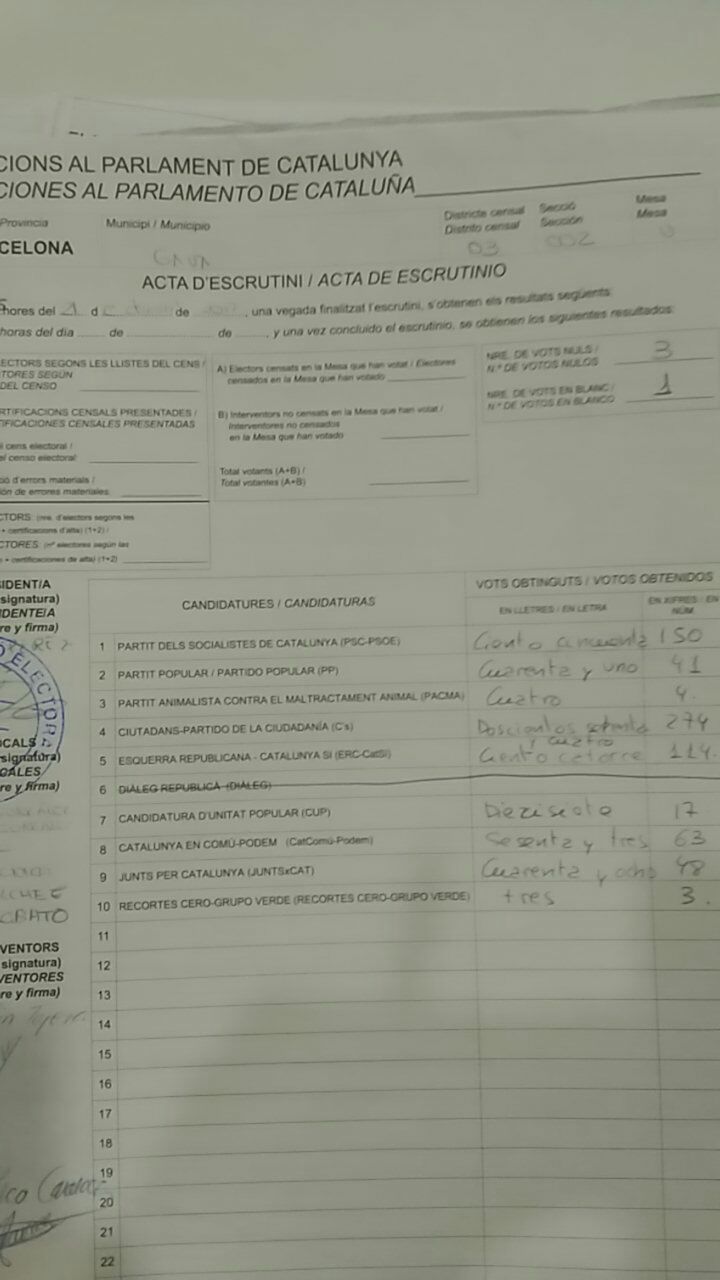 CIONS AL PARLAMENT DE CATALUNYA
CIONES AL PARLAMENTO DE CATALUÑA
Provincia Municipi / Municipio Districte censal Secció Mesa
Distrito censal Sección Mesa
CELONA 03 002
ACTA D'ESCRUTINI / ACTA DE ESCRUTINIO
hores del d de , una vegada finalitzat l'escrutini, s'obtenen els resultats següents:
horas del día de de , y una vez concluido el escrutinio, se obtienen los siguientes resultados:
ECTORS SEGONS LES LLISTES DEL CENS /
TORES SEGÚN
DEL CENSO
RTIFICACIONS CENSALS PRESENTADES /
IFICACIONES CENSALES PRESENTADAS
l cens electoral /
el censo electoral:
ió d'errors materials /
ión de errores materiales:
CTORS: (nre. d'electors segons les
+ certificacions d'alta) (1+2) /
CTORES: (nº electores según las
+ certificaciones de alta) (1+2)
A) Electors censats en la Mesa que han votat / Electores
censados en la Mesa que han votado
B) Interventors no censats en la Mesa que han votat /
Interventores no censados
en la Mesa que han votado
Total votants (A+B) /
Total votantes (A+B)
NRE. DE VOTS NULS /
N.º DE VOTOS NULOS 3
NRE. DE VOTS EN BLANC /
N.º DE VOTOS EN BLANCO 1
CANDIDATURES / CANDIDATURAS
VOTS OBTINGUTS / VOTOS OBTENIDOS
EN LLETRES / EN LETRA EN XIFRES / EN
NÚM.
1 PARTIT DELS SOCIALISTES DE CATALUNYA (PSC-PSOE) Ciento cincuenta 150
2 PARTIT POPULAR / PARTIDO POPULAR (PP) Cuarenta y uno 41
3 PARTIT ANIMALISTA CONTRA EL MALTRACTAMENT ANIMAL (PACMA) Cuatro 4.
4 CIUTADANS-PARTIDO DE LA CIUDADANÍA (C's) Doscientos setenta 274
y cuatro
5 ESQUERRA REPUBLICANA - CATALUNYA SÍ (ERC-CatSí) Ciento catorce 114.
6 DIÀLEG REPUBLICÀ (DIÀLEG)
7 CANDIDATURA D'UNITAT POPULAR (CUP) Diezisiete 17
8 CATALUNYA EN COMÚ-PODEM (CatComú-Podem) Sesenta y tres 63
9 JUNTS PER CATALUNYA (JUNTSxCAT) Cuarenta y ocho 48
10 RECORTES CERO-GRUPO VERDE (RECORTES CERO-GRUPO VERDE) tres 3.
11
12
13
14
15
16
17
18
19
20
21
22
SIDENT/A
signatura)
IDENTE/A
re y firma)
ELECTORA
OCALS
signatura)
CALES
re y firma)
VENTORS
signatura)
VENTORES
re y firma)